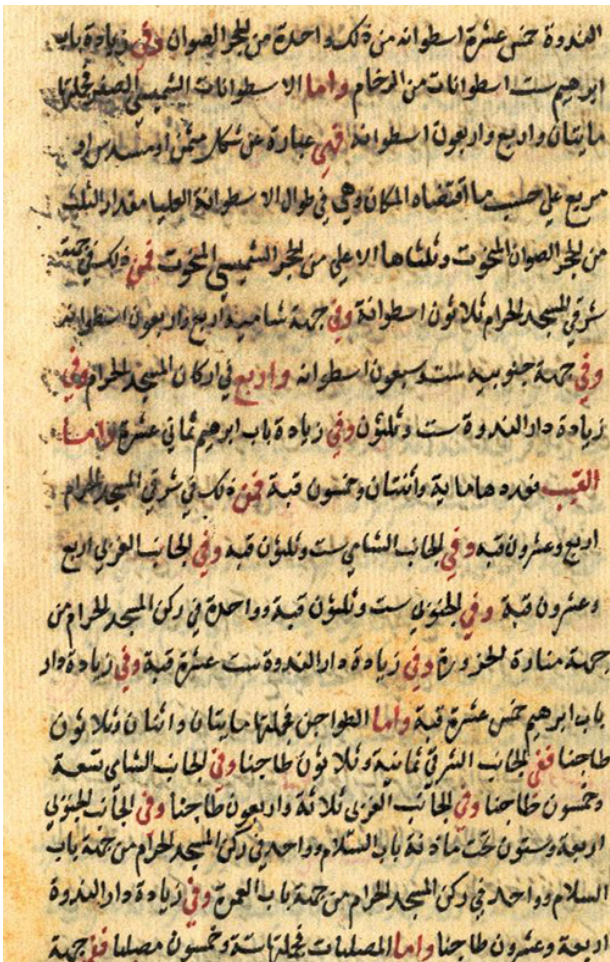 الندوة خمس عشرة اسطوانه من ذلك واحدة من الحجر الصوان وفي زيادة باب
ابرهيم ست اسطوانات من الرخام واما الاسطوانات الشميسي الصفر فجملتها
مايتان واربع واربعون اسطوانة فهي عبارة عن شكل مثمن او مسدس او
مربع علي حسب ما اقتضاه المكان وهي في طول الاسطوانة العليا مقدار الثلث
من الحجر الصوان المنحوت وثلثاها الاعلي من الحجر الشميسي المنحوت فمن ذلك في جهة
شرقي المسجد الحرام ثلاثون اسطوانة وفي جهة شامية اربع واربعون اسطوانه
وفي جهة جنوبيه ست وسبعون اسطوانه واربع في اركان المسجد الحرام وفي
زيادة دار الندوة ست وثلثون وفي زيادة باب ابرهيم ثماني عشرة واما
القبب فعدها ماية واثنتان وخمسون قبة فمن ذلك في شرقي المسجد الحرام
اربع وعشرون قبه وفي الجانب الشامي ست وثلثون قبه وفي الجانب الغربي اربع
وعشرون قبة وفي الجنوبي ست وثلثون قبة وواحدة في ركن المسجد الحرام من
جهة منارة الحزورة وفي زيادة دار الندوة ست عشرة قبة وفي زيادة دار
باب ابرهيم خمس عشرة قبة واما الطواجن فجملتها مايتان واثنان وثلاثون
طاجنا ففي الجانب الشرقي ثمانية وثلاثون طاجنا وفي الجانب الشامي تسعة
وخمسون طاجنا وفي الجانب الغربي ثلاثة واربعون طاجنا وفي الجانب الجنوبي
اربعة وستون تحت ماذنة باب السلام وواحد في ركن المسجد الحرام من جهة باب
السلام وواحد في ركن المسجد الحرام من جهة باب العمرة وفي زيادة دار الندوة
اربعة وعشرون طاجنا واما المصلبات فجملتها ستة وخمسون مصلبا فمن جهة